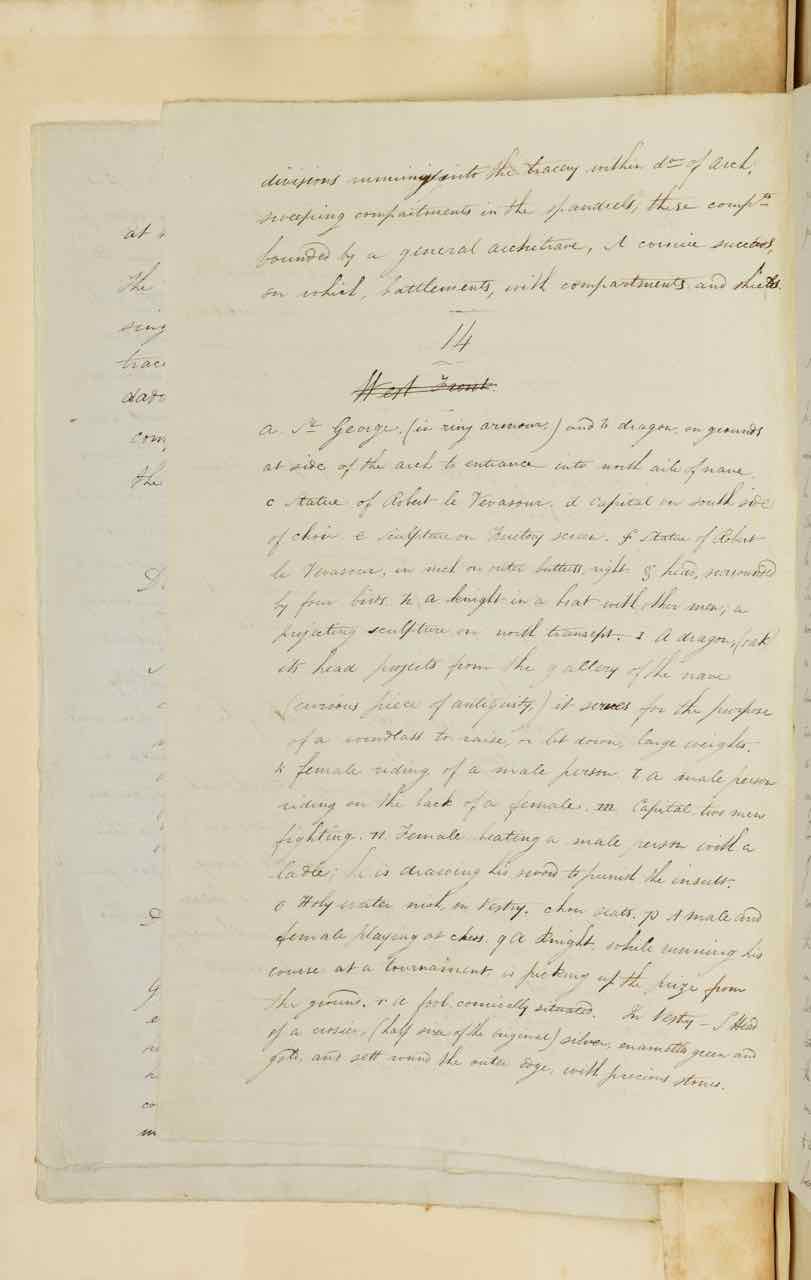 divisions running into the tracery within do. of arch,
sweeping compartments in the spandrels, these compts.
bounded by a general architrave, A cornice succeeds,
on which, battlements, with compartments and shields.
14
West Front
a. St. George. (in ring armour,) and b dragon, on grounds
at side of the arch to entrance into north aile of nave
c Statue of Robert le Vevasour. d Capital on south side
of choir e sculpture on screen. f Statue of Robert
le Vevasour, in nich on outer buttress, right g head, surrounded
by four birds h, a knight in a boat with other men, a
projecting sculpture on north transept. i A dragon, (oak)
its head projects from the gallery of the nave
(curious piece of antiquity,) it serves for the purpose
of a windlass to raise, or let down, large weights.
k female riding of a male person l a male person
riding on the back of a female. m Capital two men
fighting. n. Female beating a male person with a
ladle; he is drawing his sword to punish the insult.
o Holy water nich, in Vestry. choir seats. p A male and
female playing at chess. q A Knight, while running his
course at a tournament, is picking up the prize from
the ground. r a fool comically situated. In Vestry - S Head
of a crosier, (half size of the original) silver, enamelled green and
gold, and sett round the outer edge, with precious stones.
at
the
sing
trac
dado
com
the
D
co